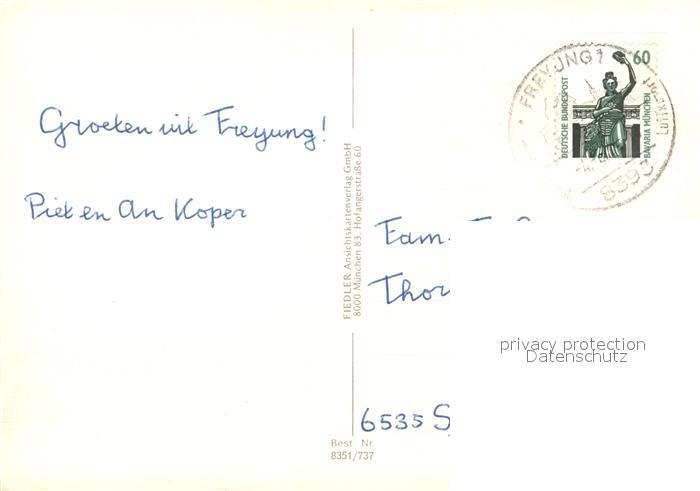 Groeten uit Freyung!
Piet en An Koper
FIEDLER Ansichtskartenverlag GmbH
8000 München 83, Hofangerstraße 60
FREYUNG 1
8393
Luftkurort
60
DEUTSCHE BUNDESPOST
BAVARIA MÜNCHEN
Fam.
Thor
6535 S
privacy protection
Datenschutz
Best Nr.
8351/737